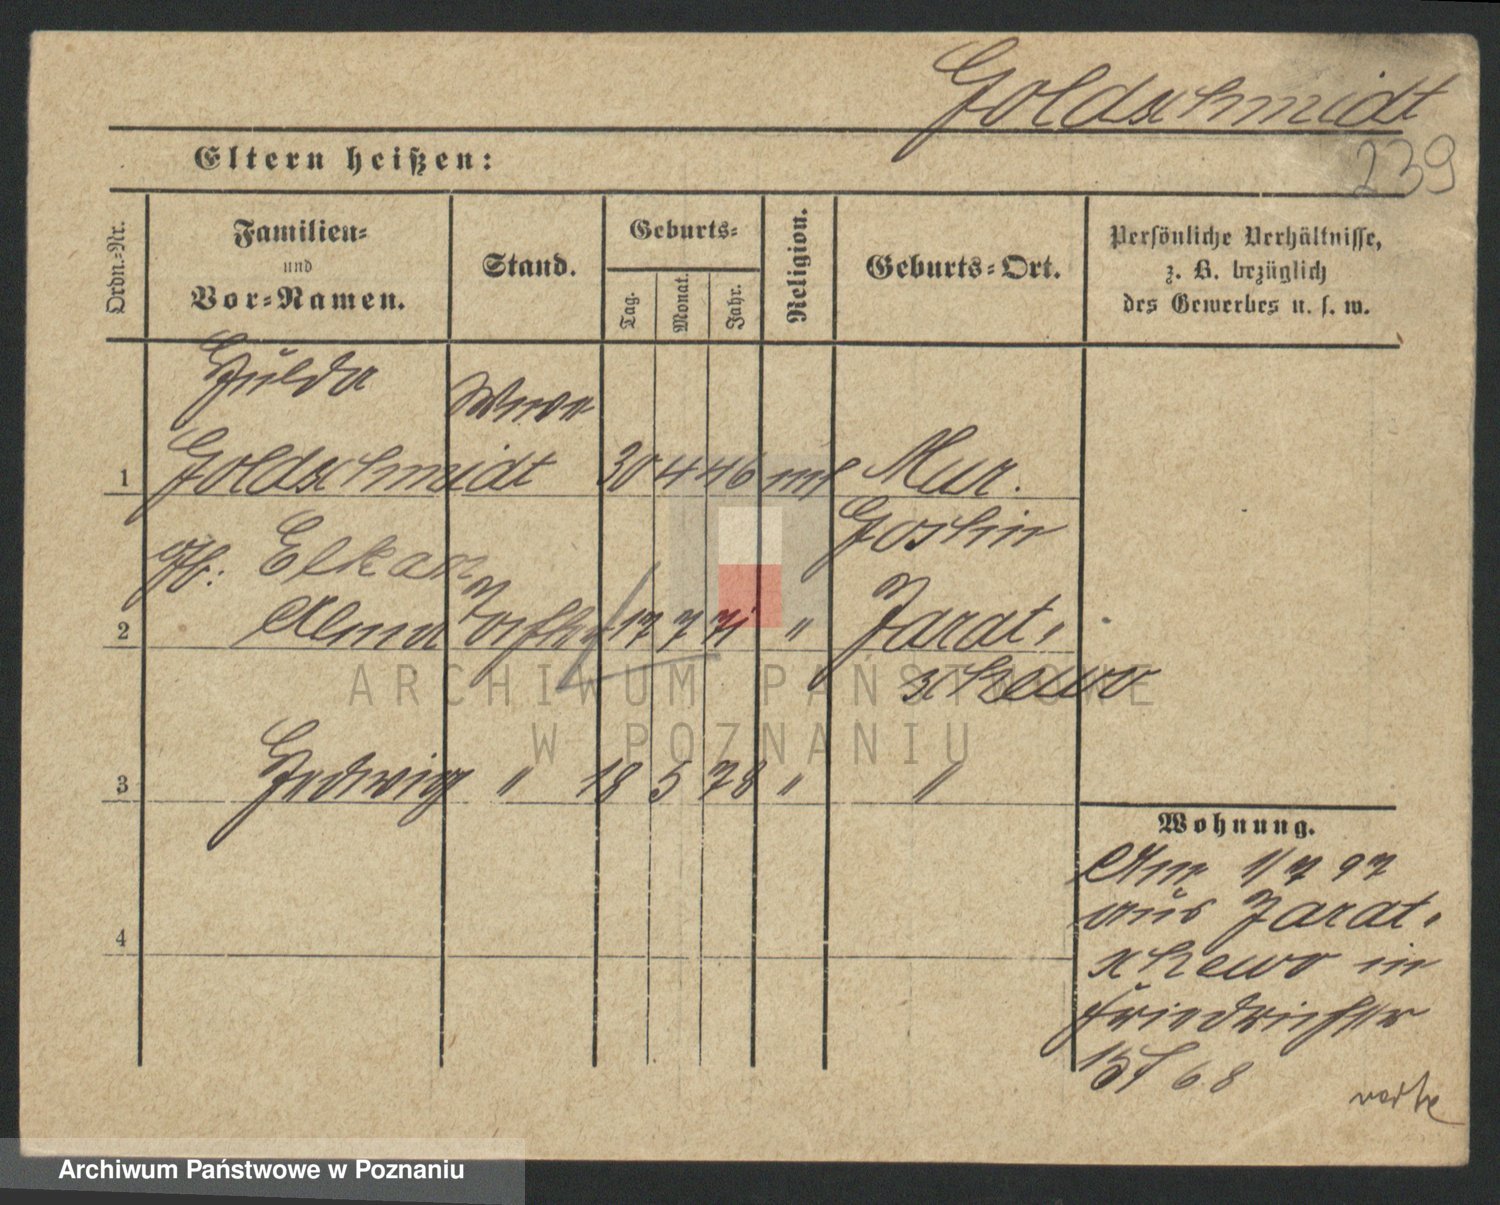 Goldschmidt
239
Eltern heißen:
Ordn.-Nr.
Familien-
und
Vor-Namen.
Stand.
Geburts-
Tag.
Monat.
Jahr.
Religion.
Geburts-Ort.
Persönliche Verhältnisse,
z. B. bezüglich
des Gewerbes u. s. w.
Hulda
Wwe
1 Goldschmidt 30 4 46 mos Mur.
Goslin
gb. Elkan
2 Alma Tochter 17 7 71 " Jarat-
schewo
3 Hedwig " 18 5 78 " "
4
Wohnung.
Am 1/7 97
aus Jarat-
schewo in
Friedrichstr
15/ 68
ARCHIWUM PAŃSTWOWE
W POZNANIU
Archiwum Państwowe w Poznaniu